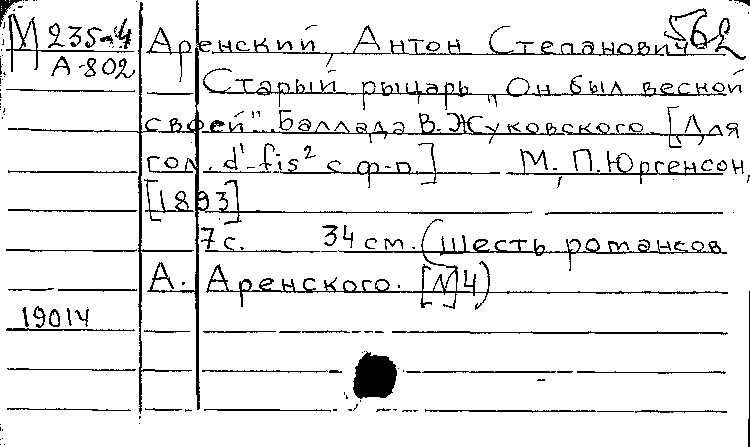 М 235-4
А-802
562
Аренский, Антон Степанович
Старый рыцарь „Он был весной
своей". Баллада В. Жуковского [Для
гол. d¹-fis² с ф-п.] М., П. Юргенсон,
[1893]
7 с. 34 см. (Шесть романсов
А. Аренского. [№]4)
19014